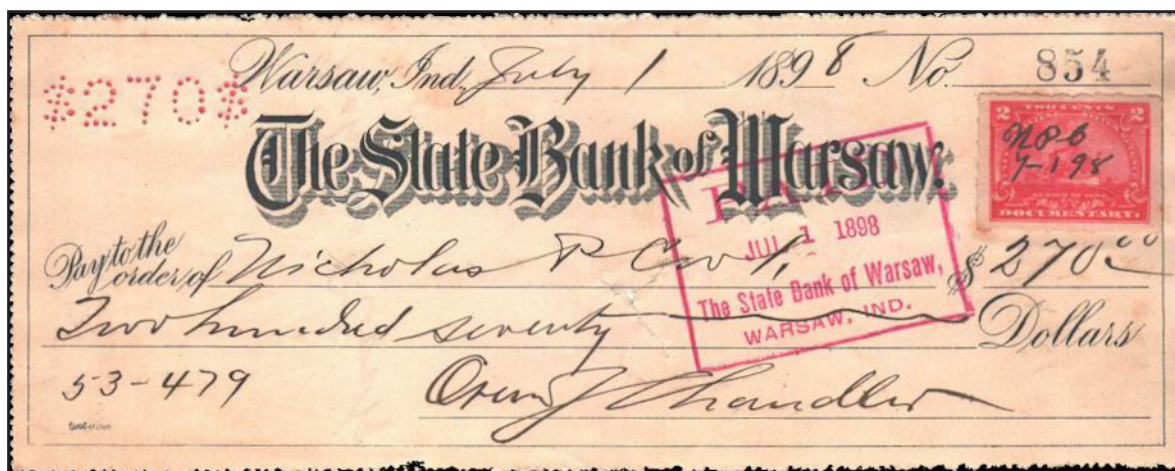 Warsaw, Ind. July 1 1898 No. 854
$270$
TWO CENTS
2 2
7-1 98
DOCUMENTARY.
The State Bank of Warsaw.
PAID
JUL 1 1898
The State Bank of Warsaw,
WARSAW, IND.
Pay to the order of Nicholas P $270.00
Two hundred seventy Dollars
53-479
Chandler